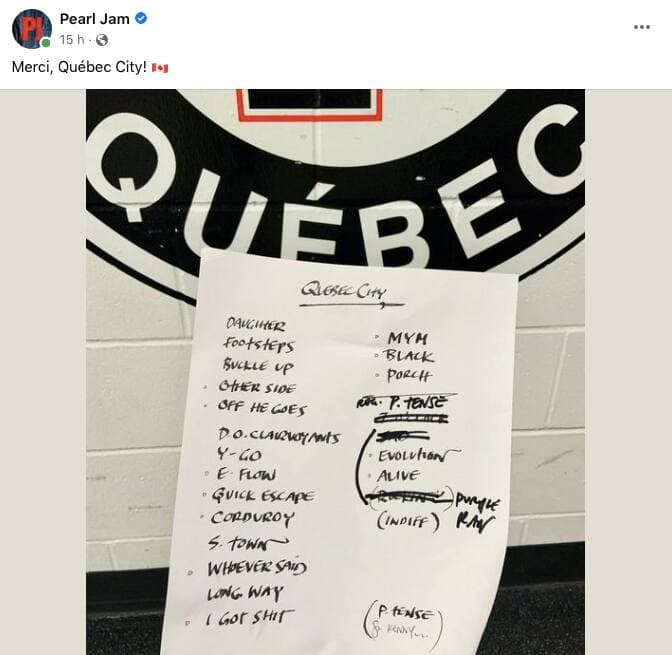 Pearl Jam
15 h
Merci, Québec City!
QUÉBEC
QUEBEC CITY
DAUGHTER
FOOTSTEPS
BUCKLE UP
OTHER SIDE
OFF HE GOES
D.O.CLAIRVOYANTS
Y-GO
E. FLOW
QUICK ESCAPE
CORDUROY
S. TOWN
WHOEVER SAID
LONG WAY
I GOT SHIT
MYM
BLACK
PORCH
P. TENSE
EVOLUTION
ALIVE
PURPLE
(INDIFF) RAIN
(P. TENSE